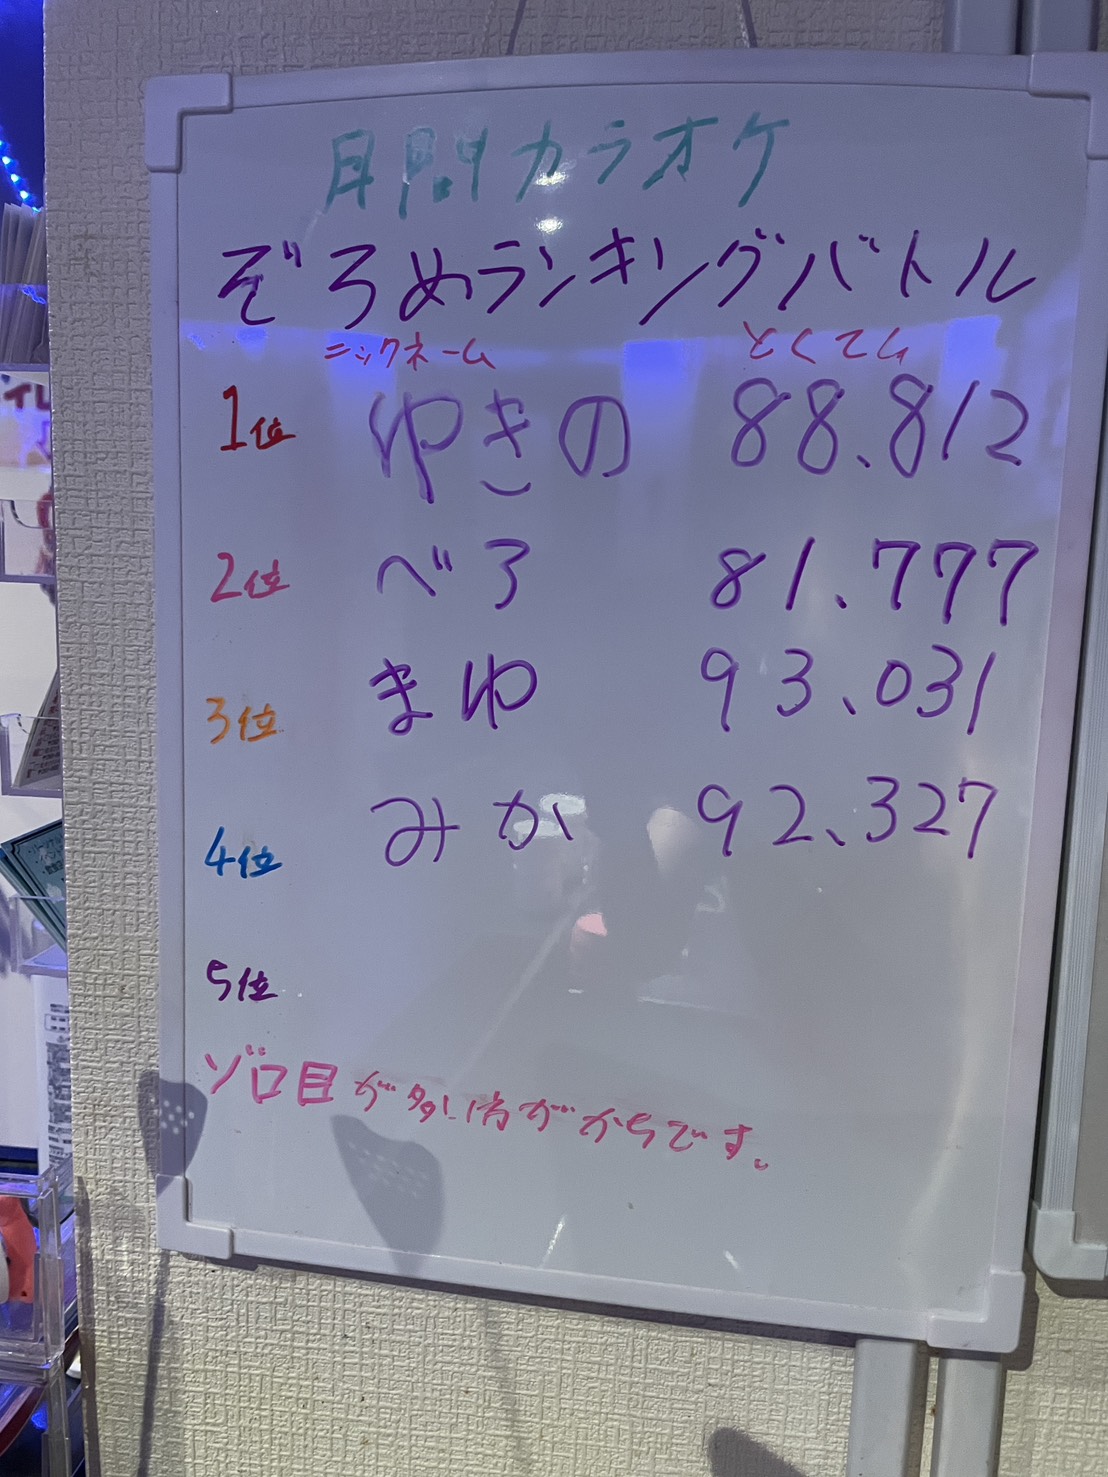 月間カラオケ
ぞろめランキングバトル
ニックネーム とくてん
1位 ゆきの 88.812
2位 べろ 81.777
3位 まゆ 93.031
4位 みか 92.327
5位
ゾロ目が多い方がかちです。